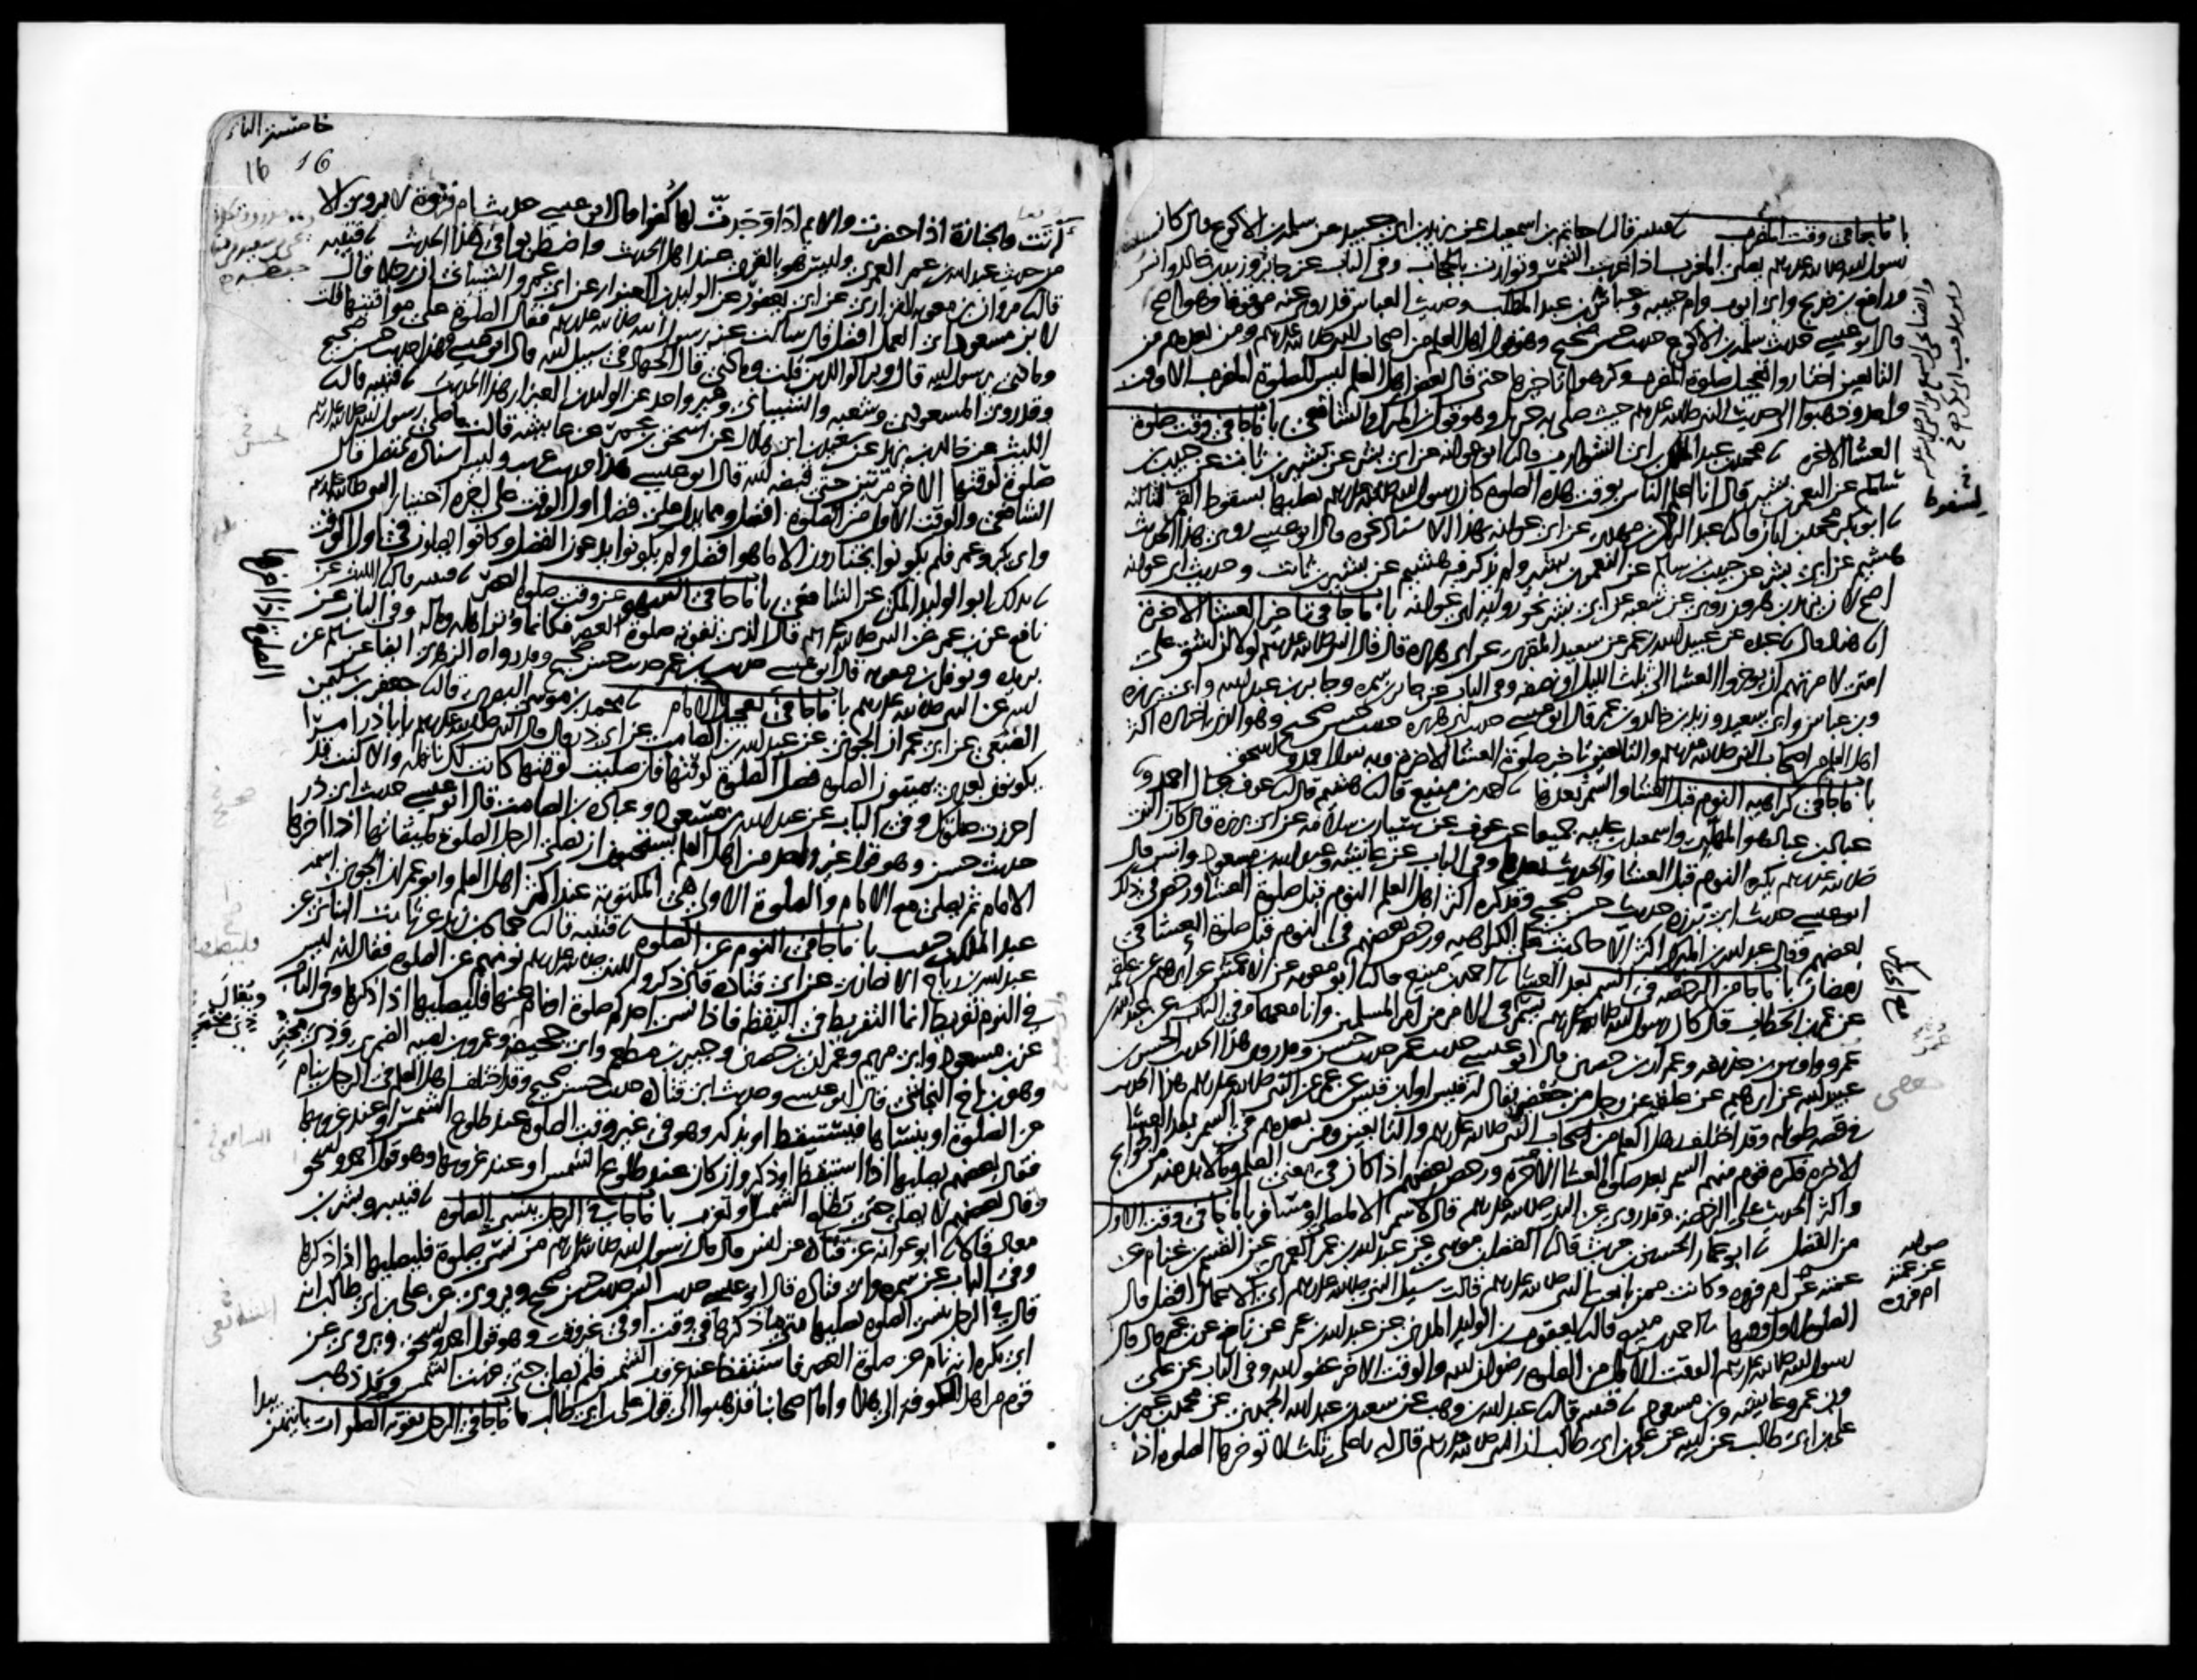 باب ما جا في وقت المغرب ثنا قتيبه قال ثنا حاتم بن اسمعيل عن يزيد بن ابي عبيد عن سلمه بن الاكوع قال كان
رسول الله صلى الله عليه وسلم يصلي المغرب اذا غربت الشمس وتوارت بالحجاب وفي الباب عن جابر وزيد بن خالد وانس
ورافع بن خديج وابي ايوب وام حبيبه وعباس بن عبد المطلب وحديث العباس قد روي عنه موقوفا وهو اصح
قال ابو عيسى حديث سلمه بن الاكوع حديث حسن صحيح وهو قول اهل العلم من اصحاب النبي صلى الله عليه وسلم ومن بعدهم من
التابعين اختاروا تعجيل صلوة المغرب وكرهوا تاخيرها حتى قال بعض اهل العلم ليس لصلوة المغرب الا وقت
واحد وذهبوا الى حديث النبي صلى الله عليه وسلم حيث صلى به جبريل وهو قول ابن المبارك والشافعي باب ما جا في وقت صلوة
العشا الاخره ثنا محمد بن عبد الملك بن ابي الشوارب قال ثنا ابو عوانه عن ابي بشر عن بشير بن ثابت عن حبيب بن
سالم عن النعمن بن بشير قال انا اعلم الناس بوقت هذه الصلوه كان رسول الله صلى الله عليه وسلم يصليها بسقوط القمر لثالثه
ثنا ابو بكر محمد بن ابان قال ثنا عبد الرحمن بن مهدي عن ابي عوانه بهذا الاسناد نحوه قال ابو عيسى روى هذا الحديث
هشيم عن ابي بشر عن حبيب بن سالم عن النعمن بن بشير ولم يذكر فيه هشيم عن بشير بن ثابت وحديث ابي عوانه
اصح لان يزيد بن هرون روى عن شعبه عن ابي بشر نحو رواية ابي عوانه باب ما جا في تاخير العشا الاخرة
ثنا هناد قال ثنا عبده عن عبيد الله بن عمر عن سعيد المقبري عن ابي هريره قال قال النبي صلى الله عليه وسلم لولا ان اشق على
امتي لامرتهم ان يوخروا العشا الى ثلث الليل او نصفه وفي الباب عن جابر بن سمره وجابر بن عبد الله وابي برزه
وبن عباس وابي سعيد وزيد بن خالد وبن عمر قال ابو عيسى حديث ابي هريره حديث حسن صحيح وهو الذي اختاره اكثر
اهل العلم من اصحاب النبي صلى الله عليه وسلم والتابعين تاخير صلوة العشا الاخره وبه يقول احمد واسحق
باب ما جا في كراهيه النوم قبل العشا والسمر بعدها ثنا احمد بن منيع قال ثنا هشيم قال ثنا عوف قال احمد وثنا
عباد بن عباد هو المهلبي واسمعيل بن عليه جميعا عن عوف عن سيار بن سلامه عن ابي برزه قال كان النبي
صلى الله عليه وسلم يكره النوم قبل العشا والحديث بعدها وفي الباب عن عايشه وعبد الله بن مسعود وانس قال
ابو عيسى حديث ابي برزه حديث حسن صحيح وقد كره اكثر اهل العلم النوم قبل صلوة العشا ورخص في ذلك
بعضهم وقال عبد الله بن المبارك اكثر الاحاديث على الكراهيه ورخص بعضهم في النوم قبل صلوة العشا في
رمضان باب ما جا من الرخصه في السمر بعد العشا ثنا احمد بن منيع قال ثنا ابو معويه عن الاعمش عن ابرهيم عن علقمه
عن عمر بن الخطاب قال كان رسول الله صلى الله عليه وسلم يسمر في الامر من امر المسلمين وانا معهما وفي الباب عن عبد الله بن
عمرو واوس بن حذيفه وعمران بن حصين قال ابو عيسى حديث عمر حديث حسن وقد روى هذا الحديث الحسن بن
عبيد الله عن ابرهيم عن علقمه عن رجل من جعفي يقال له قيس او ابن قيس عن عمر عن النبي صلى الله عليه وسلم هذا الحديث
في قصه طويله وقد اختلف اهل العلم من اصحاب النبي صلى الله عليه وسلم والتابعين ومن بعدهم في السمر بعد العشا
الاخره فكره قوم منهم السمر بعد صلوة العشا الاخره ورخص بعضهم اذا كان في معنى العلم وما لا بد منه من الحوايج
واكثر الحديث على الرخصه وقد روي عن النبي صلى الله عليه وسلم قال لا سمر الا لمصل او مسافر باب ما جا في وقت الاول
من الفضل ثنا ابو عمار الحسين بن حريث قال ثنا الفضل بن موسى عن عبد الله بن عمر العمري عن القسم بن غنام عن
عمته عن ام فروه وكانت ممن بايعت النبي صلى الله عليه وسلم قالت سيل النبي صلى الله عليه وسلم اي الاعمال افضل قال
الصلوه لاول وقتها ثنا احمد بن منيع قال ثنا يعقوب بن الوليد المدني عن عبد الله بن عمر عن نافع عن بن عمر قال قال
رسول الله صلى الله عليه وسلم الوقت الاول من الصلوه رضوان الله والوقت الاخر عفو الله وفي الباب عن علي
وبن عمر وعايشه وبن مسعود ثنا قتيبه قال ثنا عبد الله بن وهب عن سعيد بن عبد الله الجهني عن محمد بن عمر بن
علي بن ابي طالب عن ابيه عن علي بن ابي طالب ان النبي صلى الله عليه وسلم قال له يا علي ثلث لا توخرها الصلوه اذا
لسقوط
صوابه
عن عمته
ام فروه
16 16
اتت والجنازة اذا حضرت والايم اذا وجدت لها كفوا قال ابو عيسى حديث ام فروة لا يروى الا
من حديث عبد الله بن عمر العمري وليس هو بالقوي عند اهل الحديث واضطربوا في هذا الحديث ثنا قتيبه
قال ثنا مروان بن معويه الفزاري عن ابي يعفور عن الوليد بن العيزار عن ابي عمرو الشيباني ان رجلا قال
لابن مسعود اي العمل افضل قال سالت عنه رسول الله صلى الله عليه وسلم فقال الصلوة على مواقيتها قلت
وماذا يرسول الله قال وبر الوالدين قلت وماذا قال الجهاد في سبيل الله قال ابو عيسى وهذا حديث حسن صحيح
وقد روى المسعودي وشعبه والشيباني وغير واحد عن الوليد بن العيزار هذا الحديث ثنا قتيبه قال ثنا
الليث عن خالد بن يزيد عن سعيد بن ابي هلال عن اسحق بن عمر عن عايشه قالت ما صلى رسول الله صلى الله عليه وسلم
صلوة لوقتها الاخر مرتين حتى قبضه الله قال ابو عيسى هذا حديث غريب وليس اسناده بمتصل قال
الشافعي والوقت الاول من الصلوه افضل ومما يدل على فضل اول الوقت على اخره اختيار النبي صلى الله عليه وسلم
وابي بكر وعمر فلم يكونوا يختارون الا ما هو افضل ولم يكونوا يدعون الفضل وكانوا يصلون في اول الوقت
ثنا بذلك ابو الوليد المكي عن الشافعي باب ما جا في السهو عن وقت صلوة العصر ثنا قتيبه قال ثنا الليث عن
نافع عن بن عمر عن النبي صلى الله عليه وسلم قال الذي تفوته صلوة العصر فكانما وتر اهله وماله وفي الباب عن
بريده ونوفل بن معويه قال ابو عيسى حديث بن عمر حديث حسن صحيح وقد رواه الزهري ايضا عن سالم عن
ابيه عن النبي صلى الله عليه وسلم باب ما جا في تعجيل الامام ثنا محمد بن موسى البصري قال ثنا جعفر بن سليمن
الضبعي عن ابي عمران الجوني عن عبد الله بن الصامت عن ابي ذر قال قال النبي صلى الله عليه وسلم يا با ذر امرا
يكونون بعدي يميتون الصلوه فصل الصلوة لوقتها فان صليت لوقتها كانت لك نافله والا كنت قد
احرزت صلوتك وفي الباب عن عبد الله بن مسعود وعباده بن الصامت قال ابو عيسى حديث ابي ذر
حديث حسن وهو قول غير واحد من اهل العلم يستحبون ان يصلي الرجل الصلوة لميقاتها اذا اخرها
الامام ثم يصلي مع الامام والصلوة الاولى هي المكتوبة عند اكثر اهل العلم وابو عمران الجوني اسمه
عبد الملك بن حبيب باب ما جا في النوم عن الصلوه ثنا قتيبه قال ثنا حماد بن زيد عن ثابت البناني عن
عبد الله بن رباح الانصاري عن ابي قتاده قال ذكروا للنبي صلى الله عليه وسلم نومهم عن الصلوه فقال انه ليس
في النوم تفريط انما التفريط في اليقظه فاذا نسي احدكم صلوة او نام عنها فليصليها اذا ذكرها وفي الباب
عن بن مسعود وابي مريم وعمران بن حصين وجبير بن مطعم وابي جحيفه وعمرو بن اميه الضمري وذي مخبر
وهو بن اخ النجاشي قال ابو عيسى وحديث ابي قتاده حديث حسن صحيح وقد اختلف اهل العلم في الرجل ينام
عن الصلوة او ينساها فيستيقظ او يذكر وهو في غير وقت الصلوه عند طلوع الشمس او عند غروبها
فقال بعضهم يصليها اذا استيقظ او ذكر وان كان عند طلوع الشمس او عند غروبها وهو قول احمد واسحق
وقال بعضهم لا يصلي حتى تطلع الشمس او تغرب باب ما جا في الرجل ينسى الصلوه ثنا قتيبه وبشر بن
معاذ قالا ثنا ابو عوانه عن قتاده عن انس قال قال رسول الله صلى الله عليه وسلم من نسي صلوة فليصليها اذا ذكرها
وفي الباب عن سمره وابي قتاده قال ابو عيسى حديث انس حديث حسن صحيح ويروى عن علي بن ابي طالب انه
قال في الرجل ينسى الصلوه يصليها متى ما ذكرها في وقت او في غير وقت وهو قول احمد واسحق ويروى عن
ابي بكره انه نام عن صلوة العصر فاستيقظ عند غروب الشمس فلم يصل حتى غربت الشمس وقد ذهب
قوم من اهل الكوفه الى هذا واما اصحابنا فذهبوا الى قول علي بن ابي طالب باب ما جا في الرجل تفوته الصلوات بايتهن يبدا
الصلوة اذا اخرها
ويقال
ذي مخمر
الشافعي